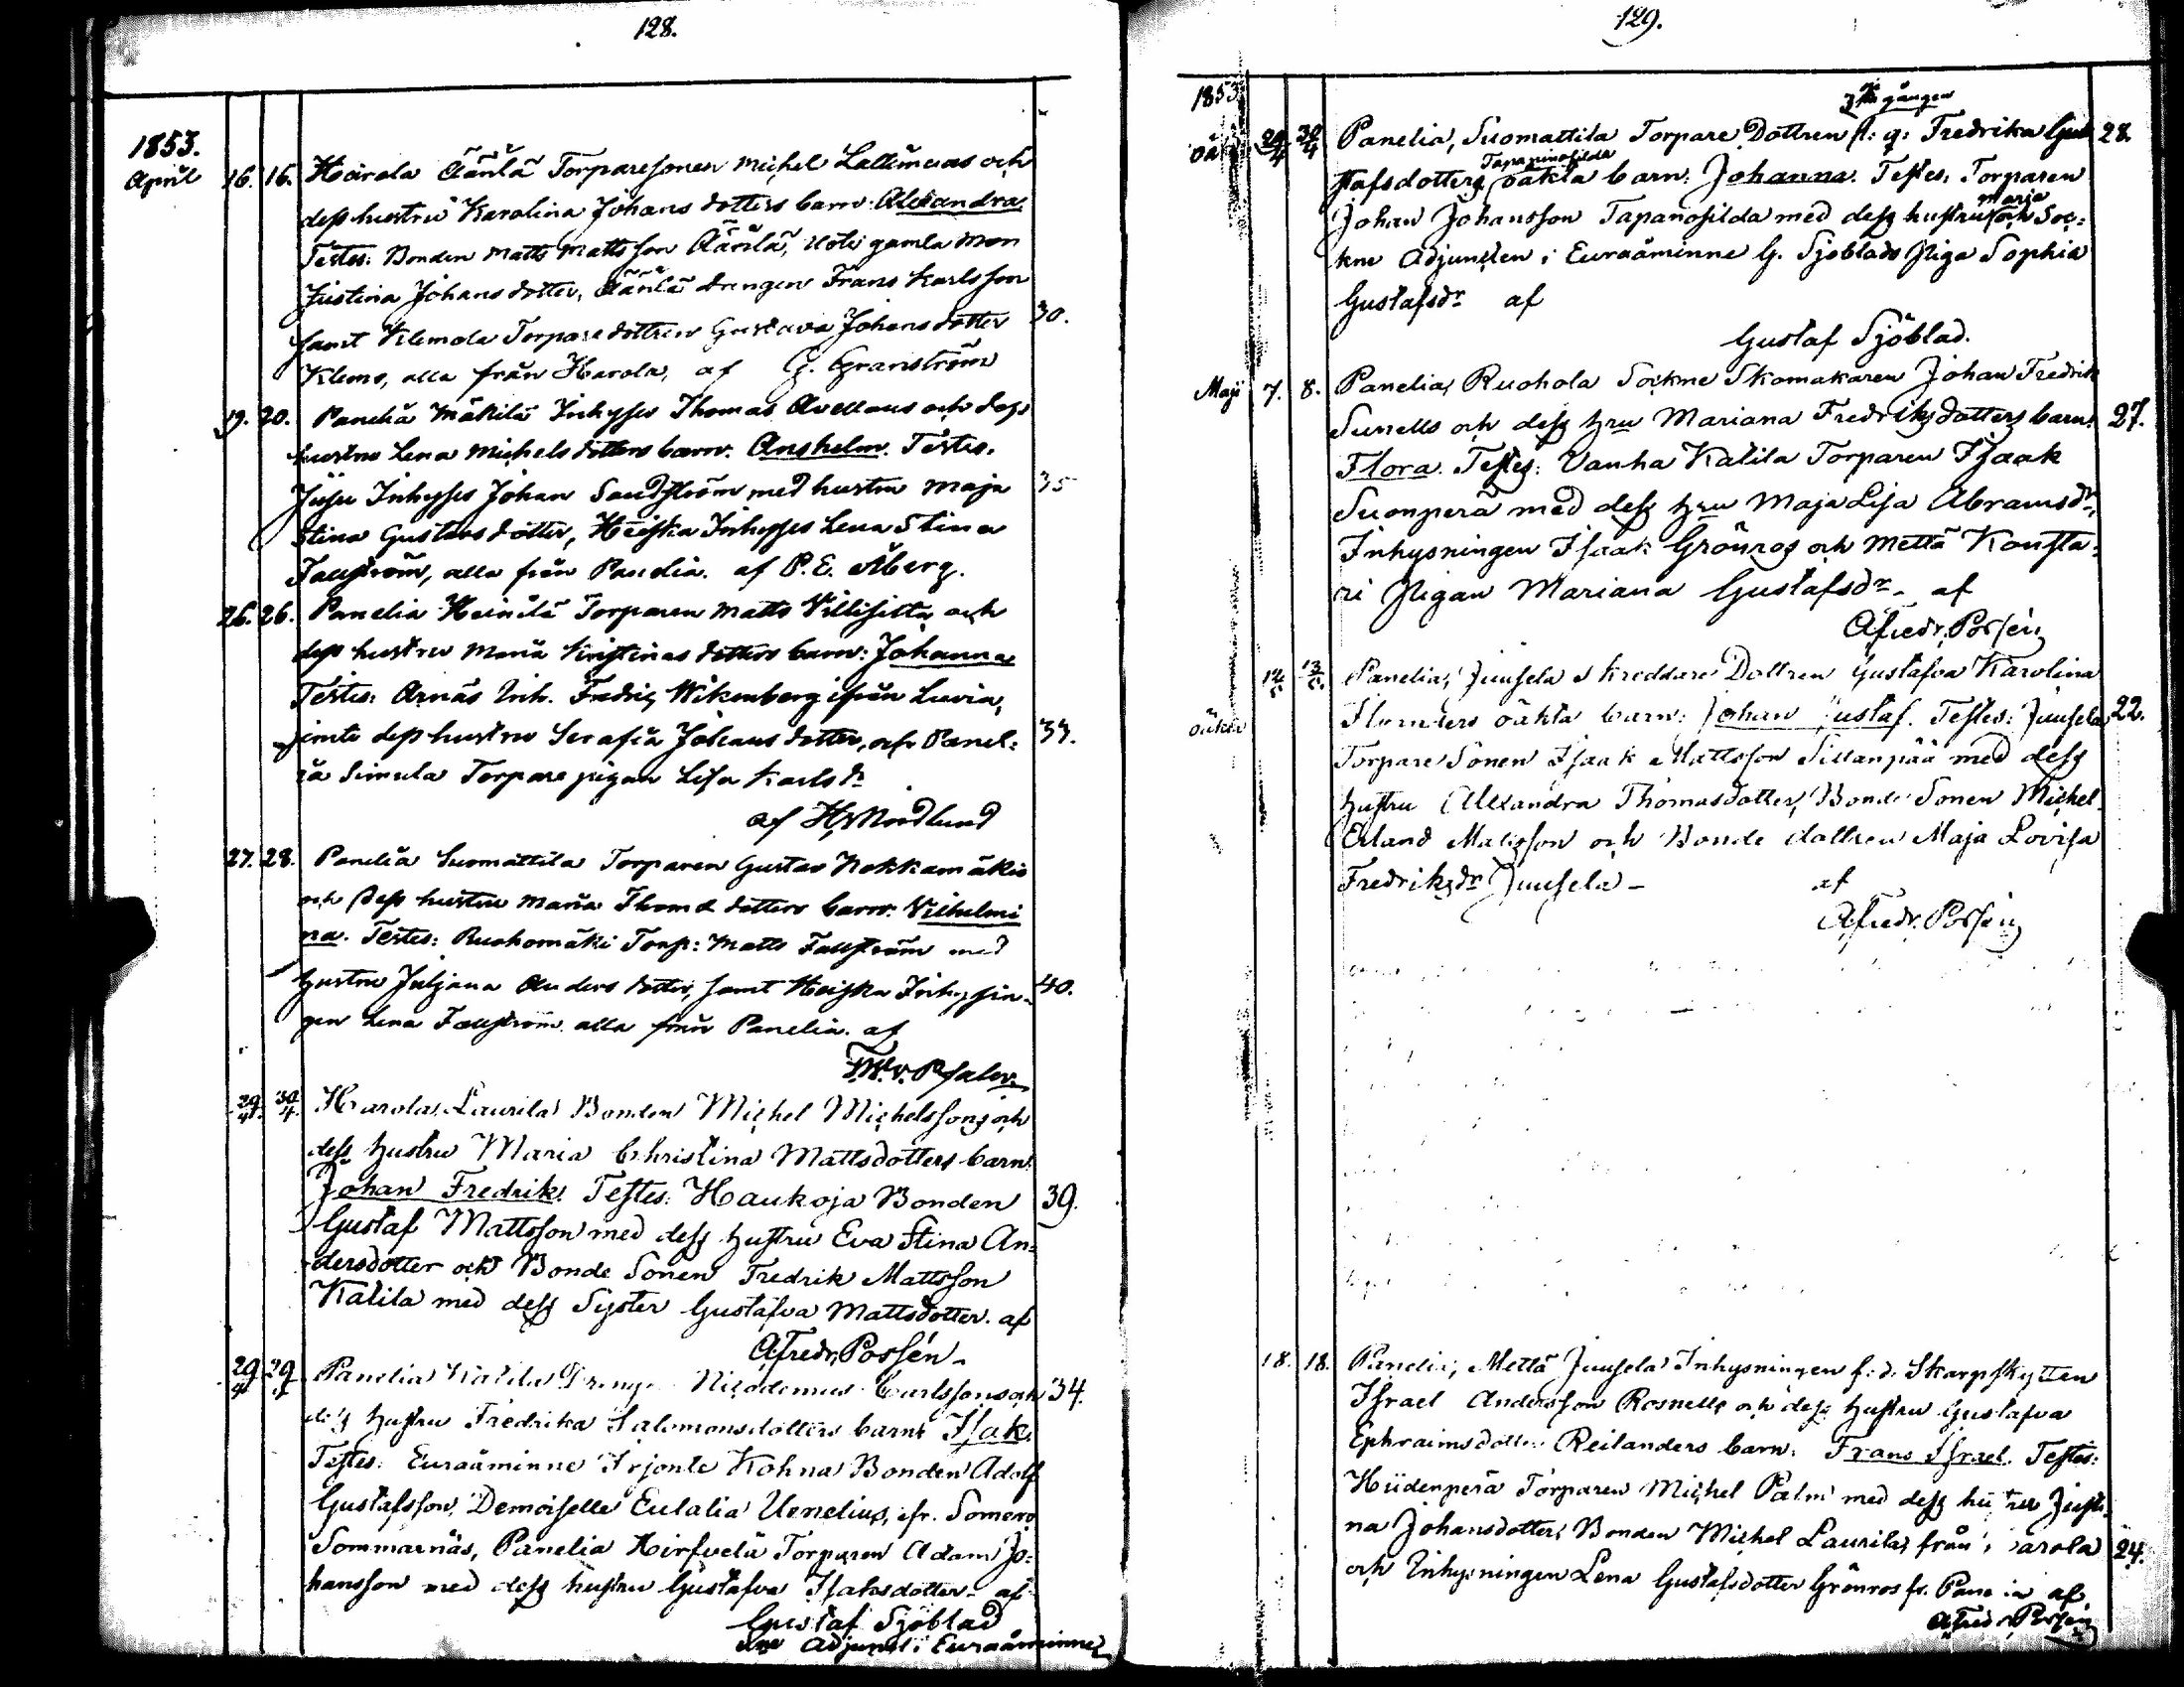 128.
1853.
April 16. 16. Harola Äänlä Torparesonen Michel Lallimuas och
dess hustru Karolina Johans dotters barn: Alexandra
Testes: Bonden Matts Mattsson Äänlä, Uoti gamla mor
Justina Johans dotter, Äänlä drengen Frans Karlsson
samt Klemola Torpare dottren Gustava Johansdotter 30.
Klemo, alla från Harola, af G. Granström
19. 20. Panelia Mäkilä Inhyses Thomas Avellaus och dess
hustru Lena Michels dotters barn: Anshelm. Testes.
Jusu Inhyses Johan Sandström med hustru Maja 35
Stina Gustavs dotter, Heiska Inhyses Lena Stina
Fallström, alla från Panelia. af P. E. Åberg.
26. 26. Panelia Heinilä Torparen Matts Villisitta och
dess hustru Maria Kristinas dotters barn: Johanna
Testes: Arnäs Inh. Fredrig Wikenberg ifrån Luvia,
jemte dess hustru Serafia Johans dotter, och Panel= 33.
ia Simula Torpare pigan Lisa Karls dr
af H. Nordlund
27. 28. Panelia Suomattila Torparen Gustav Nokkamäkis
och dess hustru Maria Thoma dotters barn: Vilhelmi
na. Testes: Ruohomäki Torp: Matts Fallström med
hustru Juljana Anders dotter, samt Heiska Inhysin- 40.
gen Lena Fallström alla från Panelia. af
29/4. 30/4. Harola, Laurila Bonden Michel Michelssons och
dess hustru Maria Christina Mattsdotters barn:
Johan Fredrik. Testes: Haukoja Bonden 39.
Gustaf Mattsson med dess hustru Eva Stina An=
dersdotter och Bonde Sonen Fredrik Mattsson
Katila med dess Syster Gustafva Mattsdotter. af
A Fredr. Possén.
29/4 29/4 Panelia Katila Dreng Nicodemus Carlssons och 34.
dess hustru Fredrika Salomonsdotters barn: Isak.
Testes: Euraåminne Irjonte Kohna Bonden Adolf
Gustafsson, Demoiselle Eulalia Uenelius, ifr. Somero
Sommarnäs, Panelia Hirfvelä Torparen Adam Jo=
hansson med dess hustru Gustafva Isaksdotter. af
Gustaf Sjöblad
Adjunct i Euraåminne
129.
1853
gången
29/4 30/4 Panelia, Suomattila Torpare Dottren Fredrika Gus 28.
Tapaninosilda
tafsdotters oäkta barn: Johanna. Testes: Torparen
Maria
Johan Johansson Tapanosilda med dess hustru och Soc=
kne Adjuncten i Euraåminne G. Sjöblads Piga Sophia
Gustafsdr af
Gustaf Sjöblad.
Maji 7. 8. Panelia, Ruohola Sockne Skomakaren Johan Fredrik
Sunells och dess hru Mariana Fredriksdotters barn: 27.
Flora. Testes: Vanha Katila Torparen Isaak
Suonperä med dess hru Maja Lisa Abramsdr,
Inhysningen Isaak Grönros och Mettä Konsta=
ri Pigan Mariana Gustafsdr. af
A Fredr. Possén
14/5 13/5. Panelia, Juusela Skreddare Dottren Gustafva Karolina
oäkta barn: Johan Gustaf. Testes: Juusela 22.
Torpare Sonen Isaak Mattsson Sillanpää med dess
hustru Alexandra Thomasdotter, Bonde Sonen Michel
Erland Matsson och Bonde dottren Maja Lovisa
Fredriksdr Juusela - af
A Fredr. Possén
18. 18. Panelia, Mettä Juusela Inhysningen f. d. Skarpskytten
Israel Andersson Rosnells och dess hustru Gustafva
Ephraimsdotter Reilanders barn: Frans Israel. Testes:
Hiidenperä Torparen Michel Palm med dess hustru Justi=
na Johansdotter, Bonden Michel Laurila, från Harola 24.
och Inhysningen Lena Gustafsdotter Grönros fr. Panelia af
A Fredr. Possén